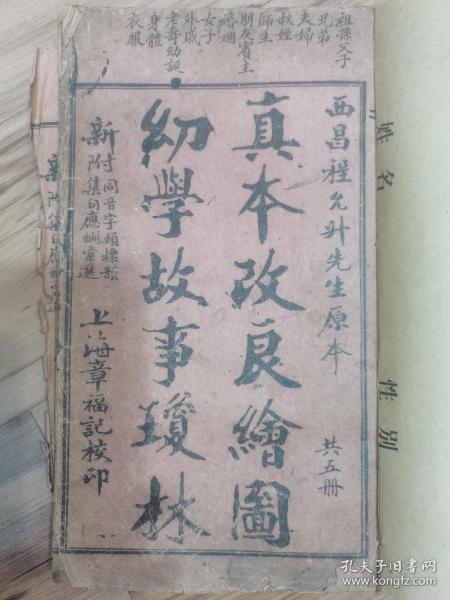 祖孫父子
兄弟
夫婦
叔姪
師生
朋友賓主
婚姻
女子
外戚
老壽幼誕
身體
衣服
西昌程允升先生原本
共五冊
真本改良繪圖
幼學故事瓊林
新附
同音字類標韻
集句應酬彙選
上海章福記校印
新附
姓名
性别
孔夫子旧书网